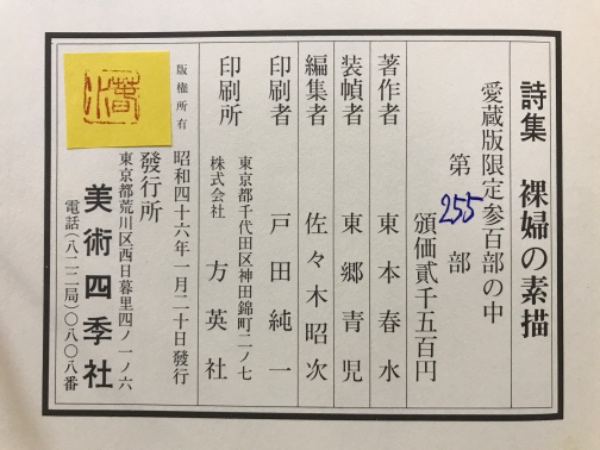 詩集 裸婦の素描
愛蔵版限定参百部の中
第 255 部
頒価貳千五百円
著作者 東本春水
装幀者 東郷青児
編集者 佐々木昭次
印刷者 戸田純一
東京都千代田区神田錦町二ノ七
印刷所 株式会社 方英社
昭和四十六年一月二十日發行
版權所有
發行所
東京都荒川区西日暮里四ノ一ノ六
美術四季社
電話(八二二局)〇八〇八番